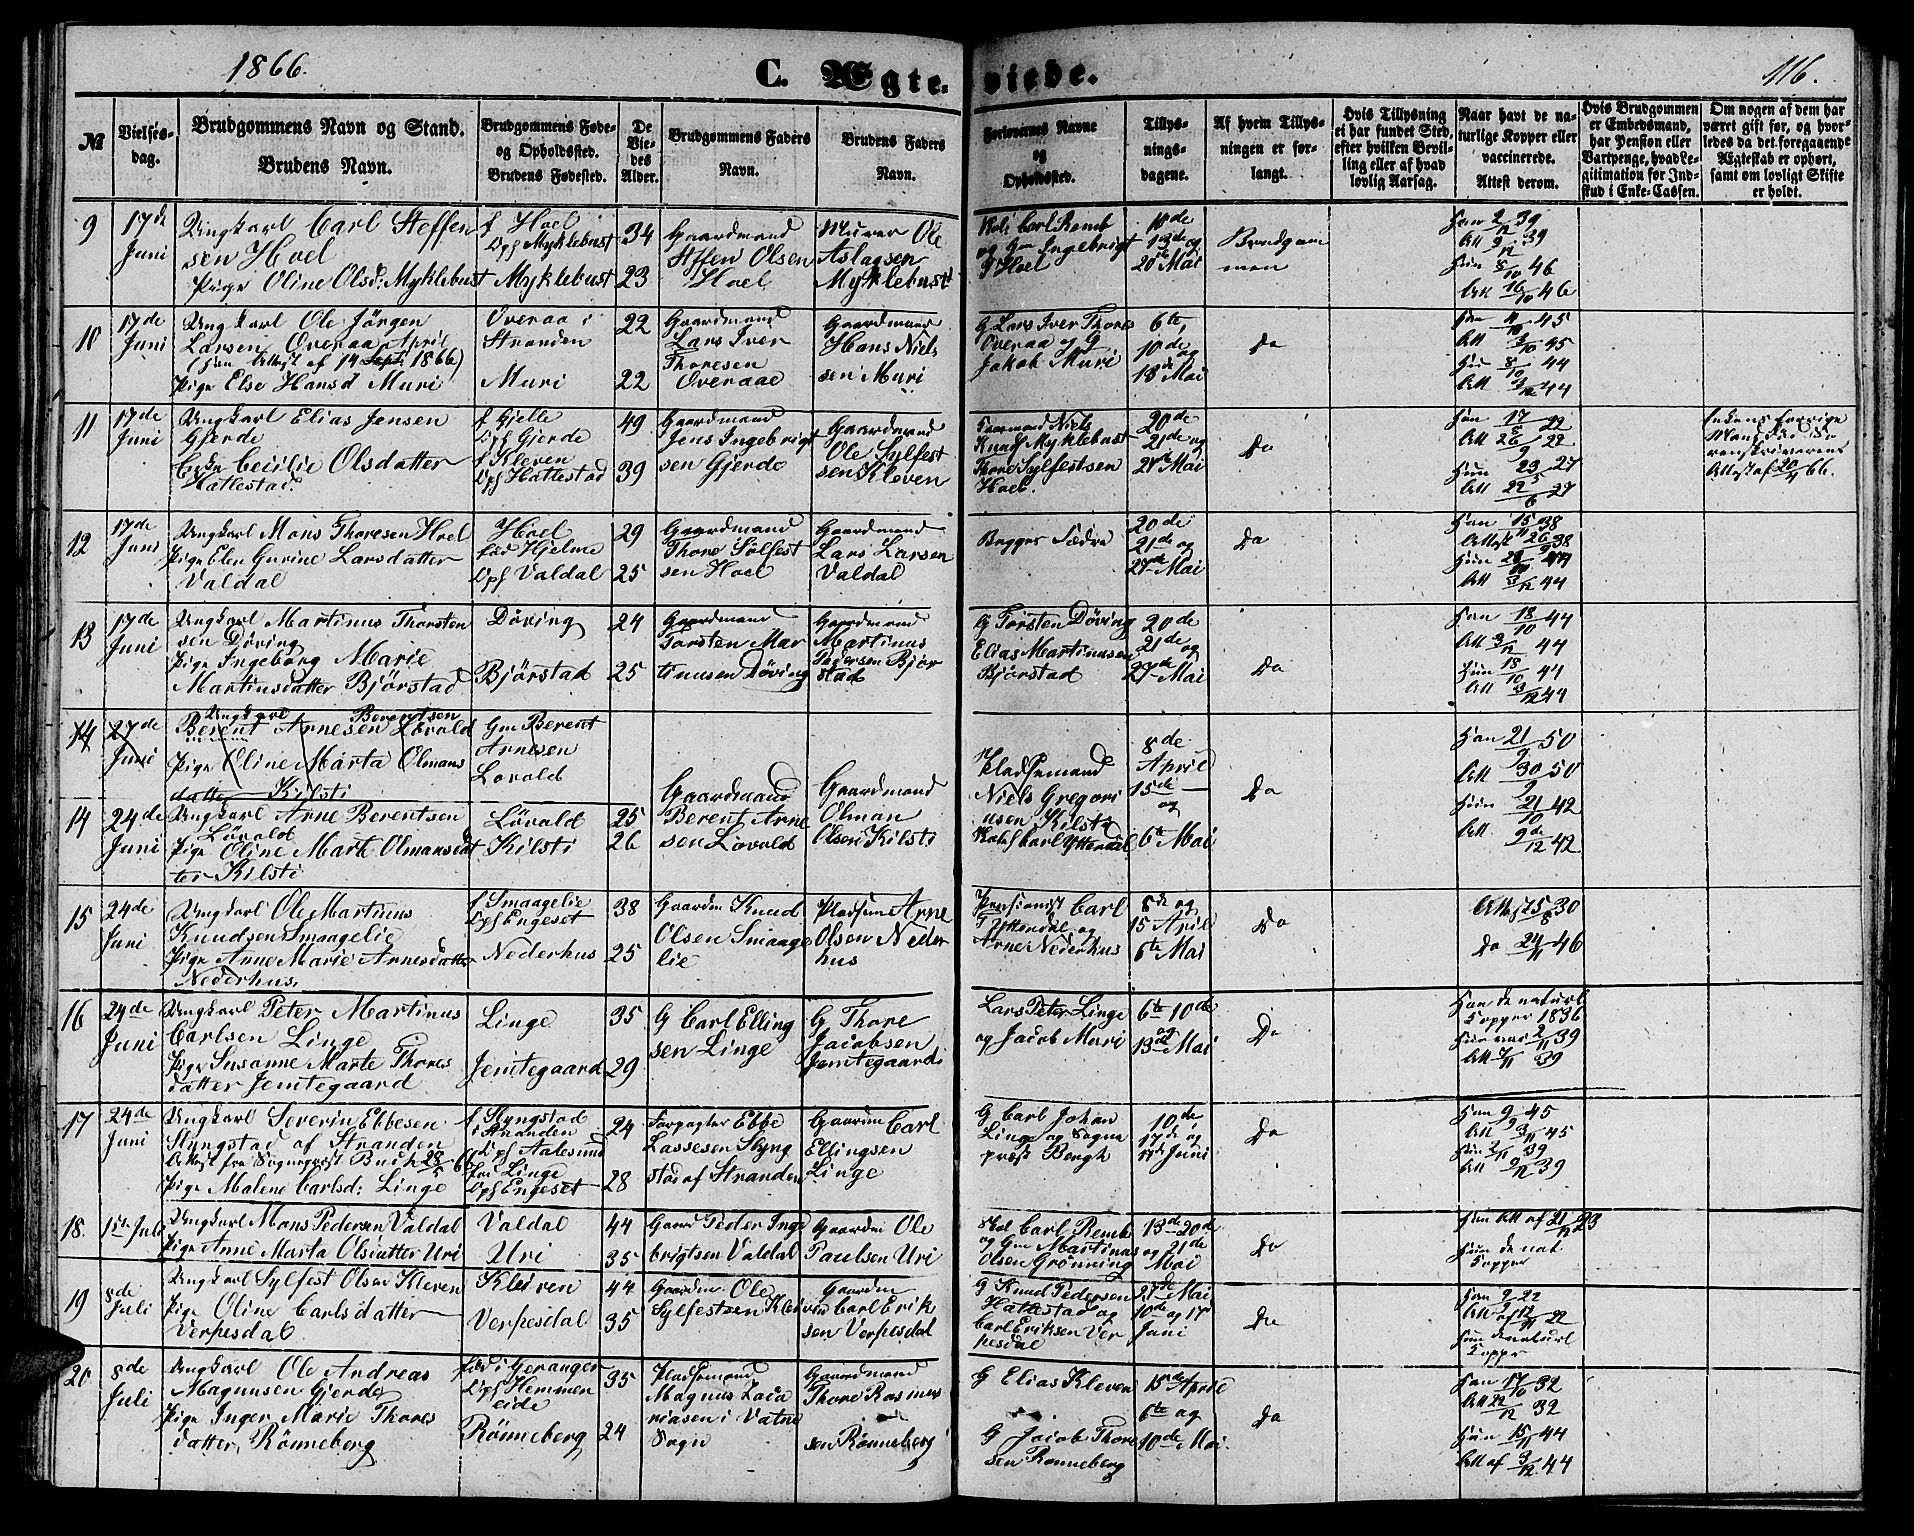 1866.
C. Ægteviede.
116.
№
Vielses-dag.
Brudgommens Navn og Stand.
Brudens Navn.
Brudgommens Føde- og Opholdssted.
Brudens Fødested.
De Viedes Alder.
Brudgommens Faders Navn.
Brudens Faders Navn.
Forlovernes Navne og Opholdssted.
Tillysningsdagene.
Af hvem Tillysningen er forlangt.
Hvis Tillysning ei har fundet Sted, efter hvilken Bevilling eller af hvad lovlig Aarsag.
Naar havt de naturlige Kopper eller vaccinerede. Attest derom.
Hvis Brudgommen er Embedsmand, har Pension eller Vartpenge, hvad Legitimation for Indskud i Enke-Cassen.
Om nogen af dem har været gift før, og hvorledes da det foregaaende Ægteskab er ophørt, samt om lovligt Skifte er holdt.
9
17de Juni
Ungkarl Carl Steffensen Hoel
Pige Oline Olsd: Myklebust
f Hoel
Opf Myklebust
Myklebust
34
23
Gaardmand Steffen Olsen Hoel
Murer Ole Aslagsen Myklebust
Carl Remb og Gm Ingebrigt Hoel
10de 13de og 20de Mai
Brudgommen
Han 2/12 39
Att 9/12 39
Hun 8/10 46
Att 16/10 46
10
17de Juni
Ungkarl Ole Jörgen Larsen Overaa
(Han Attest af 14 April 1866)
Pige Else Hansd Muri
Overaa i Stranden
Muri
22
22
Gaardmand Lars Iver Thoresen Overaae
Gaardmand Hans Nielssen Muri
G Lars Iver Thores Overaa og G Jakob Muri
6te, 10de og 13de Mai
Do
45
45
44
Att 3/12 44
11
17de Juni
Ungkarl Elias Jensen Gjerde
Enke Cecilie Olsdatter Hattestad.
f Gjelle
Opf Gjerde
f Kleven
Opf Hattestad
49
39
Gaardmand Jens Ingebrigtsen Gjerde
Gaardmand Ole Sylfestsen Kleven
Gaarmand Niels Knudf Myklebust
Thore Sylfestsen Hoel.
20de 21de og 27de Mai
Do
Han 17/8 22
Att 26/9 22
Hun 23/5 27
Att 22/6 27
Enkens forrige Mand død Sorenskriverens Attest af 20/4 66.
12
17de Juni
Ungkarl Mons Thoresen Hoel
Pige Elen Gurine Larsdatter Valdal
Hoel
fød Hjelme
Opf Valdal
29
25
Gaardmand Thore Sölfestsen Hoel
Gaardmand Lars Larsen Valdal
Begges Fædre
20de 21de og 27de Mai
Do
Han 15/11 38
Attest 26/9 38
Att 3/12 44
13
17de Juni
Ungkarl Martinus Thorstensen Döving
Pige Ingeborg Marie Martinsdatter Bjørstad
Döving
Bjørstad
24
25
Gaardmand Torsten Martinusen Döving
Gaardmand Martinus Pedersen Bjørstad
G Torsten Döving
Elias Martinusen Bjørstad
20de 21de og 27de Mai
Do
Han 18/10 44
Att 3/12 44
Hun 18/10 44
Att 3/12 44
14
27de Juni
Ungkarl Berentsen
Berent Arnesen Lövald
Pige Oline Marta Olmansdatter Kilsti
Gm Berent Arnesen Lovald
14
24de Juni
Ungkarl Arne Berentsen Lövald
Pige Oline Marte Olmansdatter Kilsti
Lövald
Kilsti
25
26
Gaardmand Berent Arnesen Lovald
Gaardmand Olman Olsen Kilsti
Pladsemand Niels Gregoriusen Kilsti
Carl Ytterdal
8de April 15de og 6te Mai
Do
Han 21/9 50
Att 30/9 50
Hun 21/10 42
Att 9de/12 42
15
24de Juni
Ungkarl Ole Martinus Knudsen Smaagelie
Pige Anne Marie Arnesdatter Nederhus,
f Smaagelie
Opf Engeset
Nederhus
38
25
Gaardm Knud Olsen Smaagelie
Pladsem Arne Olsen Nederhus
Pensionist Carl Ytterdal og Arne Nederhus
8de og 15 April 6te Mai
Do
Attest 25/8 30
Do 24/11 46
16
24de Juni
Ungkarl Peter Martinus Carlsen Linge
Pige Susanne Marte Thoresdatter Jemtegaard
Linge
Jemtegaard
35
29
G Carl Ellingsen Linge
G Thore Jacobsen Jemtegaard
Lars Peter Linge og Jacob Muri
6te 10de og 13de Mai
Do
Han de naturl Copper 1836
Hun vac 2/11 39
Att 7/11 39
17
24de Juni
Ungkarl Severin Ebbesen Slyngstad af Stranden
Attest fra Sognepræst Buch 28/5 66
Pige Malene Carlsd: Linge
f Slyngstad i Stranden
Opf Aalesund
fød Linge
Opf Engeset
24
28
Forpagter Ebbe Lassesen Slyngstad af Stranden
Gaardm Carl Ellingsen Linge
G Carl Johan Linge og Sognepræst Bergh
10de 17de og Juni
Do
Han 9/9 45
Att 3/11 45
Hun 2/11 39
Att 9/12 39
18.
1ste Juli
Ungkarl Mons Pedersen Valdal
Pige Anne Marta Olsdatter Uri
Valdal
Uri
44
35
Gaard Peder Ingebrigtsen Valdal
Gaardm Ole Paulsen Uri
Carl Remb og Gm Martinus Olsen Grønning
13de 20de og 21de Mai
Do
Han Att af 21/12 23
Hun de nat Copper
19
8de Juli
Ungkarl Sylfest Olsen Kleven
Pige Oline Carlsdatter Verpesdal
Kleiven
Verpesdal
44
35
Gaardm Ole Sylfestsen Kleiven
Gaardm Carl Eriksen Verpesdal
G Knud Pedersen Hattestad og Carl Eriksen Verpesdal
27de Mai 10de og 17 Juni
Do
Han 9/12 22
Hun de naturl Copper
20.
8de Juli
Ungkarl Ole Andreas Magnusen Gjerde
Pige Inger Marie Thoresdatter, Rönneberg
fød i Geranger
Opf Hemmeneide
Rönneberg
35
24
Pladsemand Magnus Zacariasen i Vatne Sogn
Gaardmand Thore Rasmussen Rönneberg
G Elias Kleven
G Jacob Thoresen Rönneberg
15de April 6te og 10de Mai.
Do
Han 17/10 32
Att 22/12 32
Hun 15/11 44
Att af 3/12 44